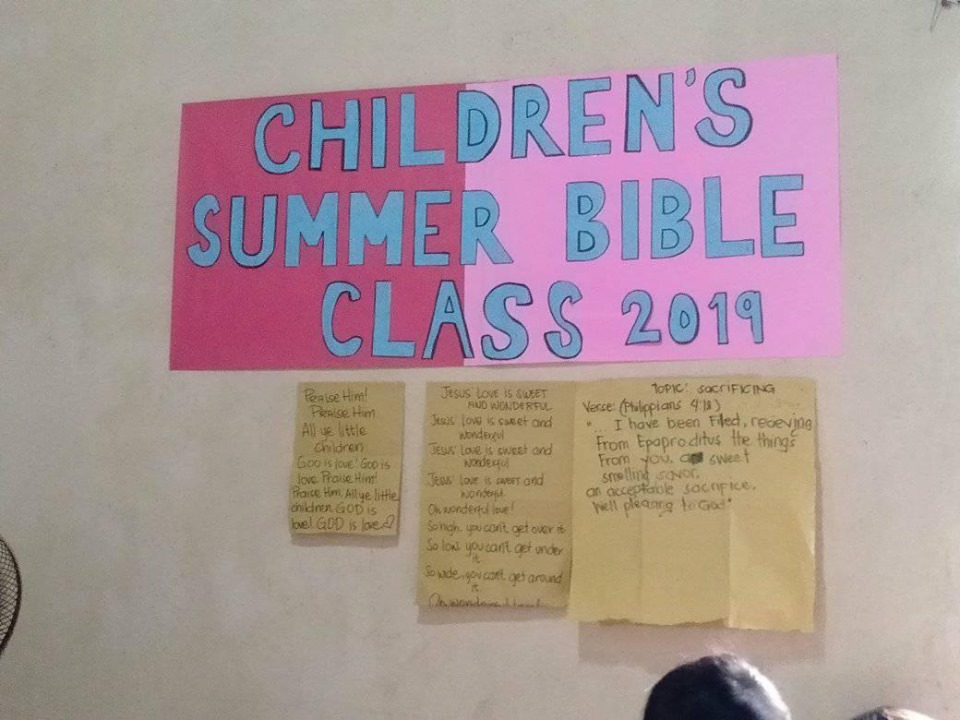 CHILDREN'S
SUMMER BIBLE
CLASS 2019
Praise Him!
Praise Him
All ye little
children
GOD is love! GOD is
love Praise Him!
Praise Him, All ye little
children GOD is
love! GOD is love
JESUS LOVE IS SWEET
AND WONDERFUL
Jesus love is sweet and
wonderful
Jesus love is sweet and
wonderful
Jesus love is sweet and
wonderful
Oh wonderful love!
So high, you can't get over it
So low, you can't get under
it
So wide, you can't get around
it.
TOPIC: SACRIFICING
Verse: (Philippians 4:18)
"... I have been Filed, receiving
From Epaproditus the things
From you, a sweet
smelling savor,
an acceptable sacrifice,
well pleasing to God"